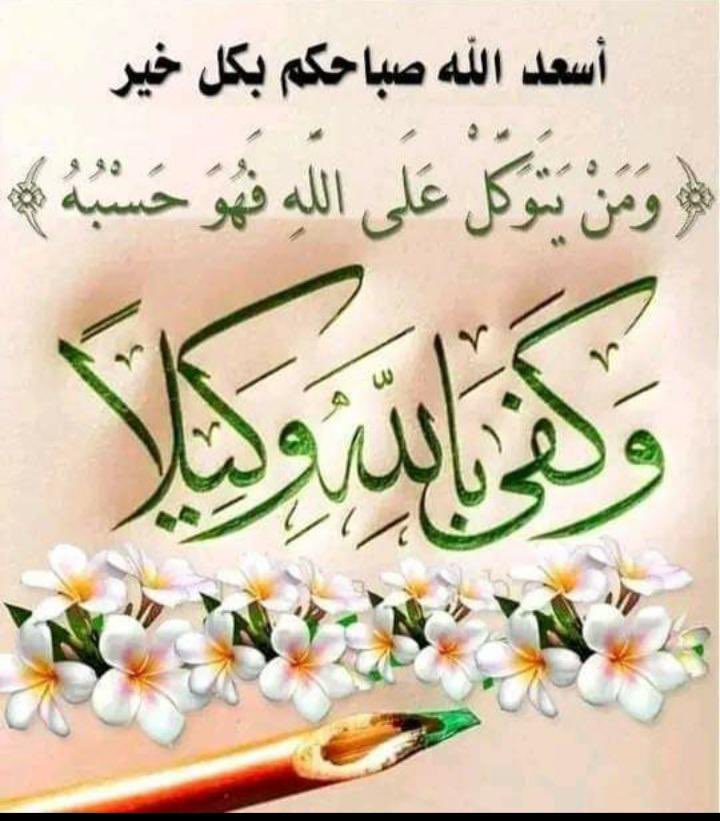 أسعد الله صباحكم بكل خير
﴿ وَمَنْ يَتَوَكَّلْ عَلَى اللَّهِ فَهُوَ حَسْبُهُ ﴾
وَكَفَى بِاللَّهِ وَكِيلاً